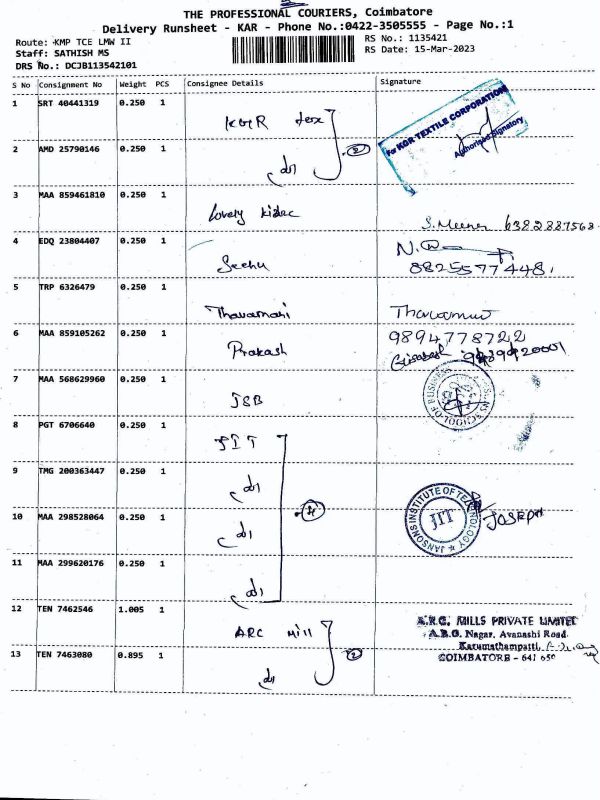 THE PROFESSIONAL COURIERS, Coimbatore
Delivery Runsheet - KAR - Phone No.:0422-3505555 - Page No.:1
Route: KMP TCE LMW II
RS No.: 1135421
Staff: SATHISH MS
RS Date: 15-Mar-2023
DRS No.: DCJB113542101
S No Consignment No Weight PCS Consignee Details Signature
1 SRT 40441319 0.250 1
KGR tex
For KGR TEXTILE CORPORATION
Authorised Signatory
2 AMD 25790146 0.250 1
do 2
3 MAA 859461810 0.250 1
Lovely S. Meena 6382887568
4 EDQ 23804407 0.250 1
Seethu 8825577448
5 TRP 6326479 0.250 1
Thavamani
6 MAA 859105262 0.250 1
Prakash
9894778722
7 MAA 568629960 0.250 1
JSB
8 PGT 6706640 0.250 1
JIT
9 TMG 200363447 0.250 1
do
10 MAA 298528064 0.250 1
do 4
JANSONS INSTITUTE OF TECHNOLOGY
JIT
JOSEPH
11 MAA 299620176 0.250 1
do
12 TEN 7462546 1.005 1
ARC Mill
A.R.C. MILLS PRIVATE LIMITED
A.R.C. Nagar, Avanashi Road
Karumathampatti,
COIMBATORE - 641 659
13 TEN 7463080 0.895 1
do 2